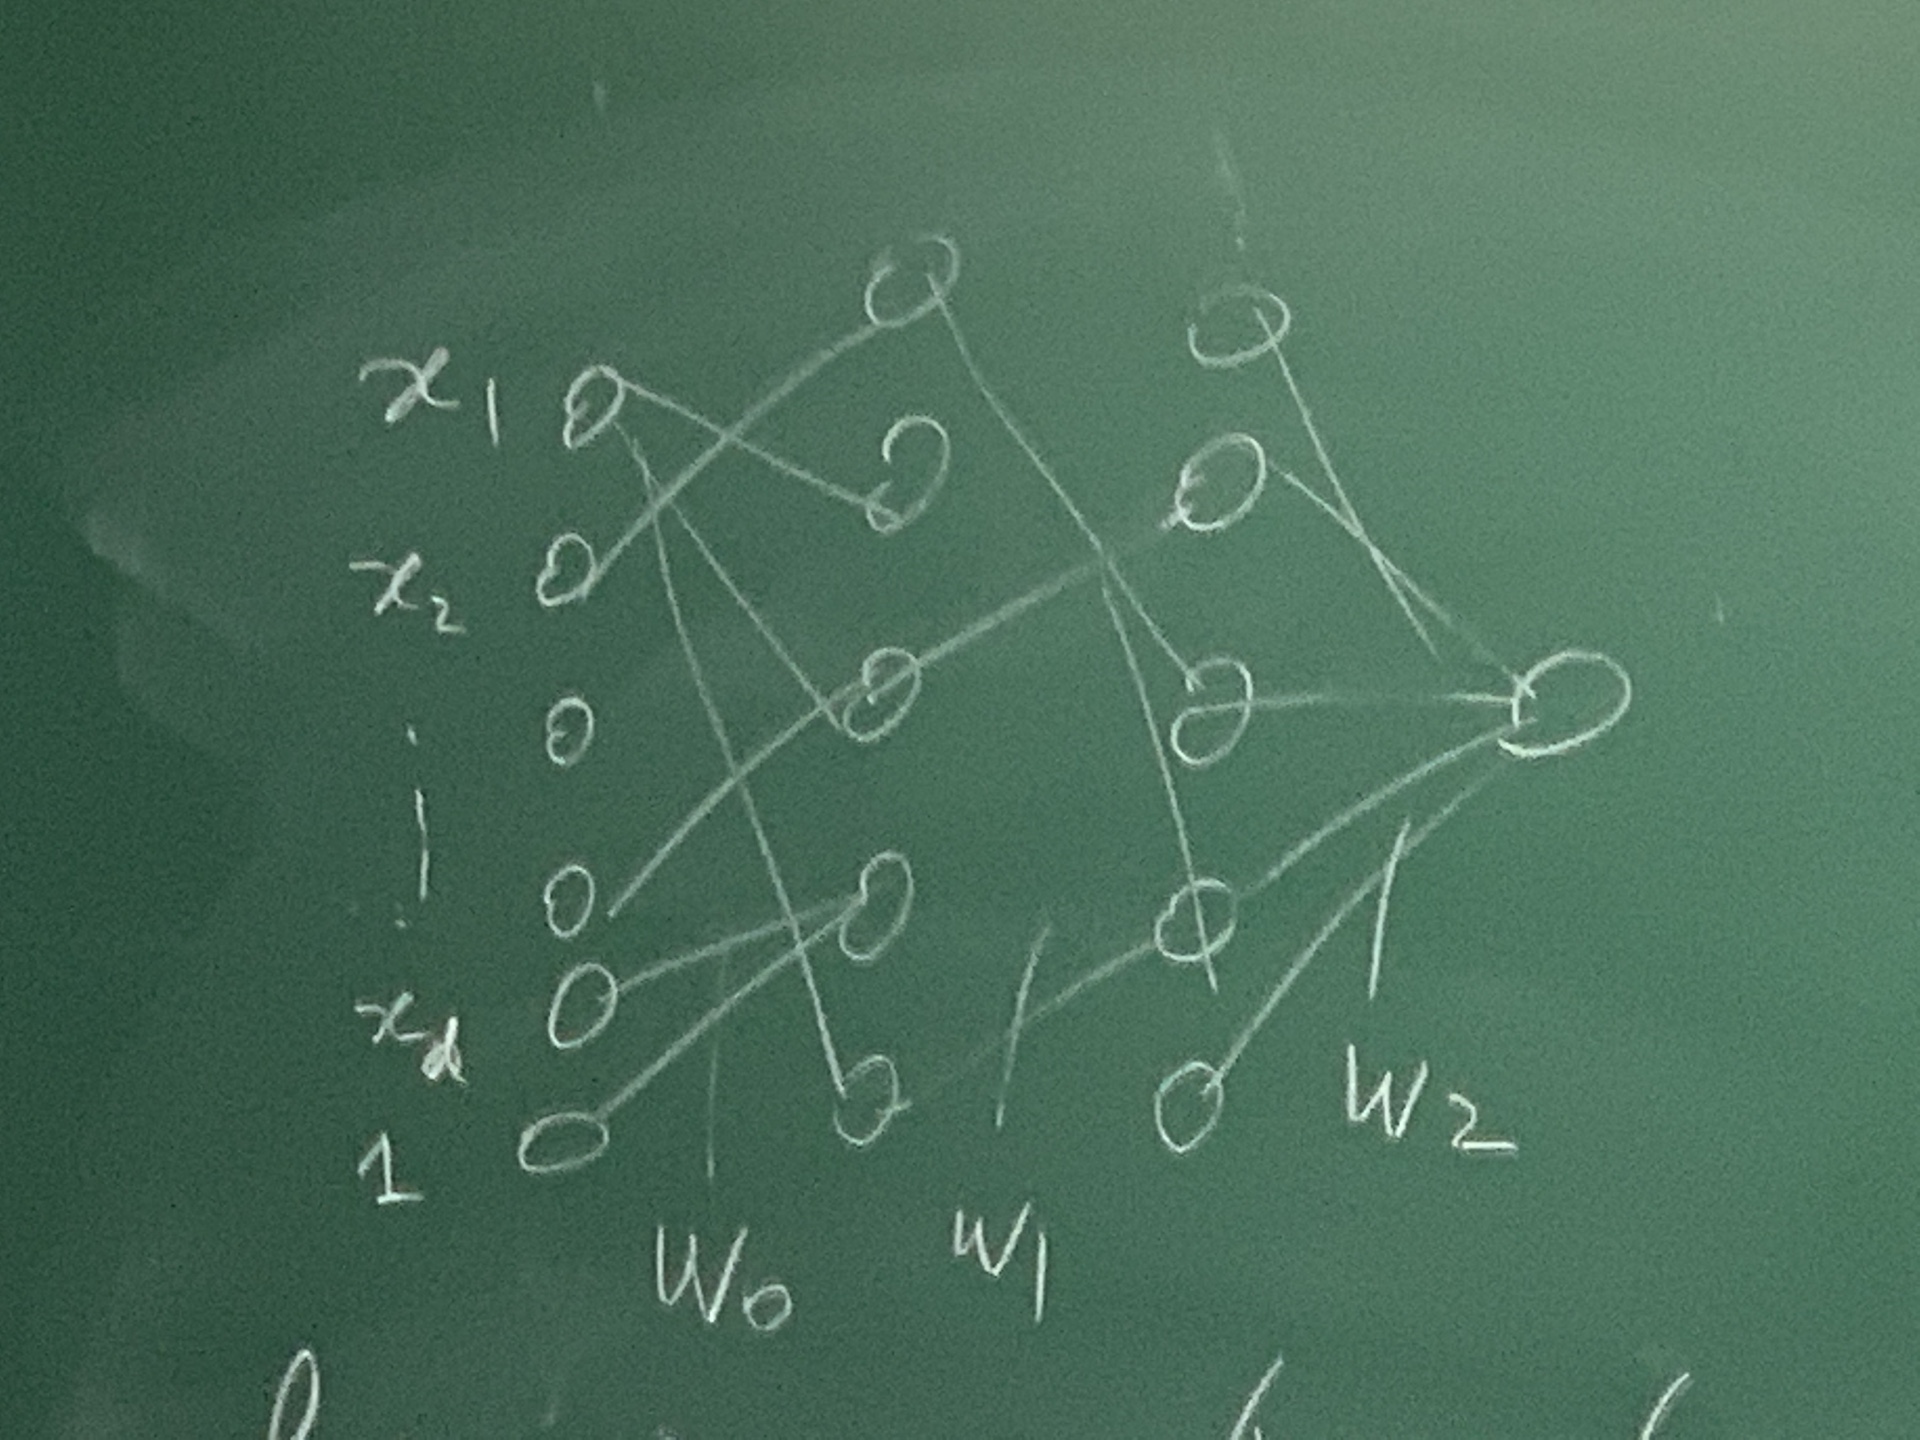 x₁
x₂
x_d
1
W₀
W₁
W₂